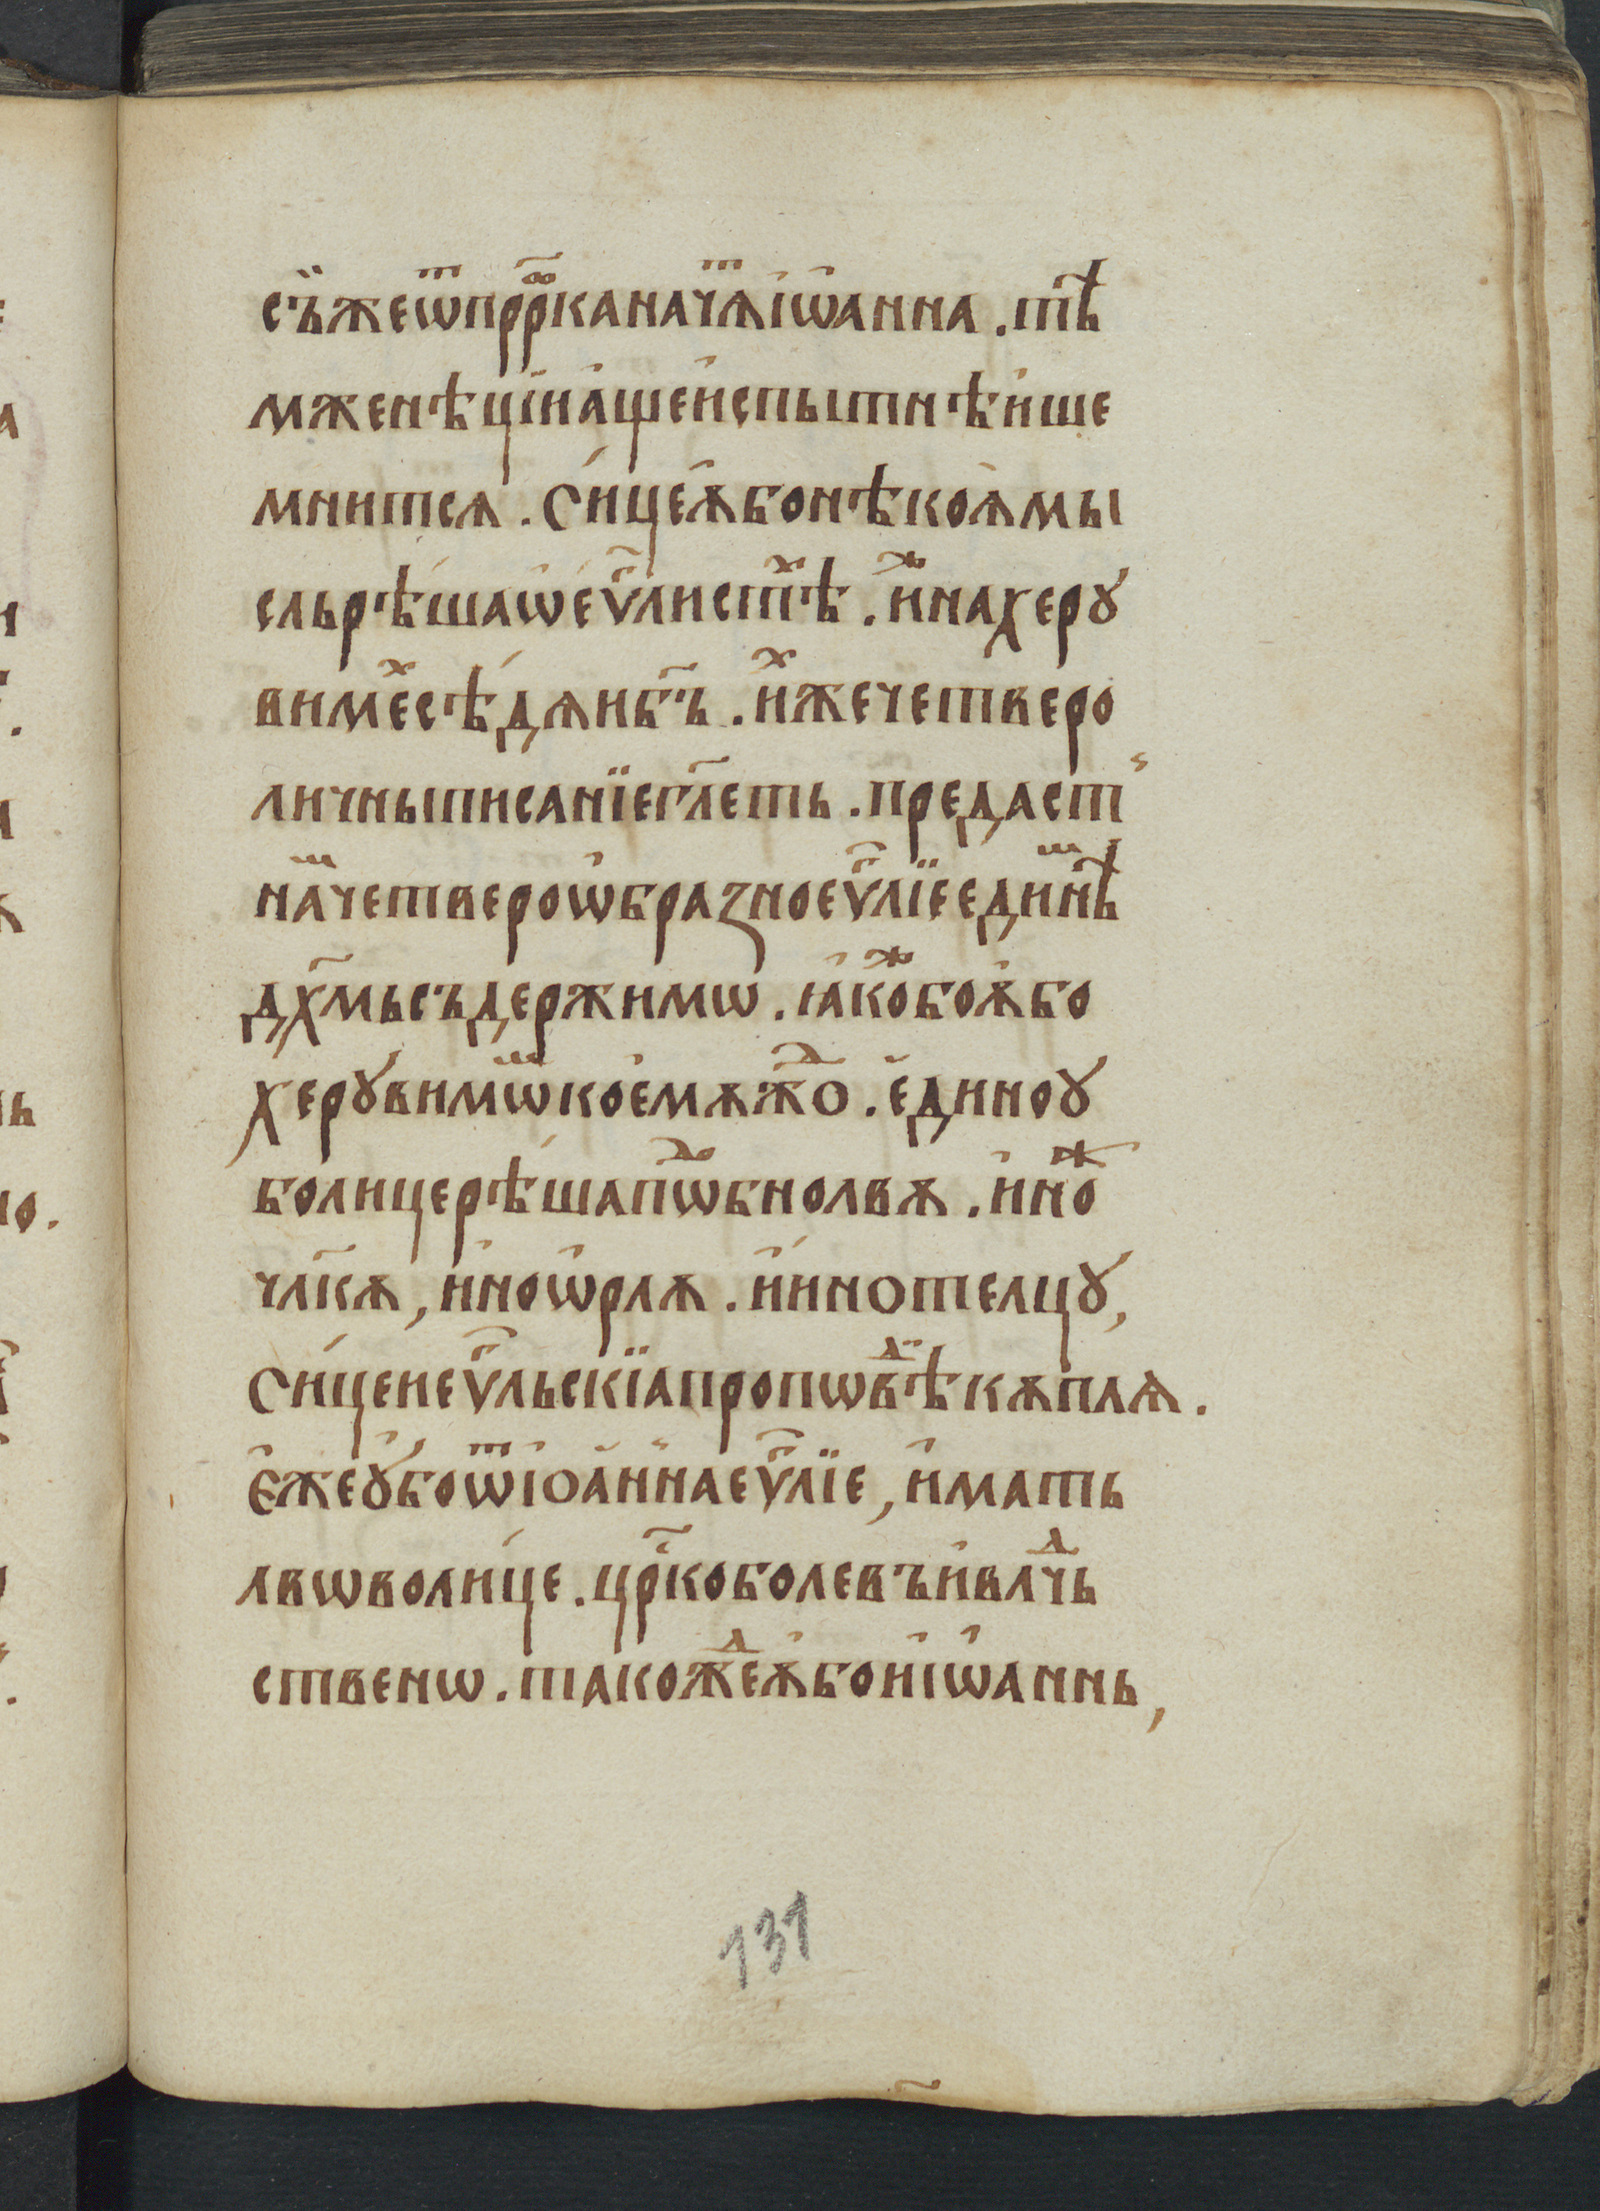 съ҆́жеѿпрⷪ҇рканачѧⷮі҆ѡ҆анна . тѣ҆
мженѣцїи҆на́щеи҆спытнѣи҆ше
мнитсѧ . Си́цеꙗ҆бонѣкоѧ҆мы
сльрѣ́шаѡ҆е҆ѵⷢ҇листⷯѣ . и҆ⷤнахерꙋ
вимеⷯ҇сѣ́дѧибг҃ъ . и҆ⷯжечетверо
личныписанїегл҃еть . предаст
наⷨ҇четвероѡ҆бразное҆ѵⷢ҇лїеединѣⷨ
дх҃мьсъдержимѡ . ꙗ҆коⷤбоꙗ҆бо
херꙋ́вимѡⷨкое҆мѫжⷣо . е҆диноꙋ
болицерѣ́шапѡⷣбнольвѫ . и҆ноⷤ
чл҃кѫ , и҆ноѡ҆рлѫ . и҆и҆нотелцꙋ ,
Си́цеие҆ѵⷢ҇льскїапропѡвⷣѣкѫплѧ .
Е҆жеꙋ҆́боѿі҆оа҆ннае҆ѵⷢ҇лїе , и҆мать
лвѡволи́це . црⷭ҇коболевъи҆влⷣчь
ственѡ . такожⷣеꙗ҆бои҆і҆ѡ҆аннь ,
131